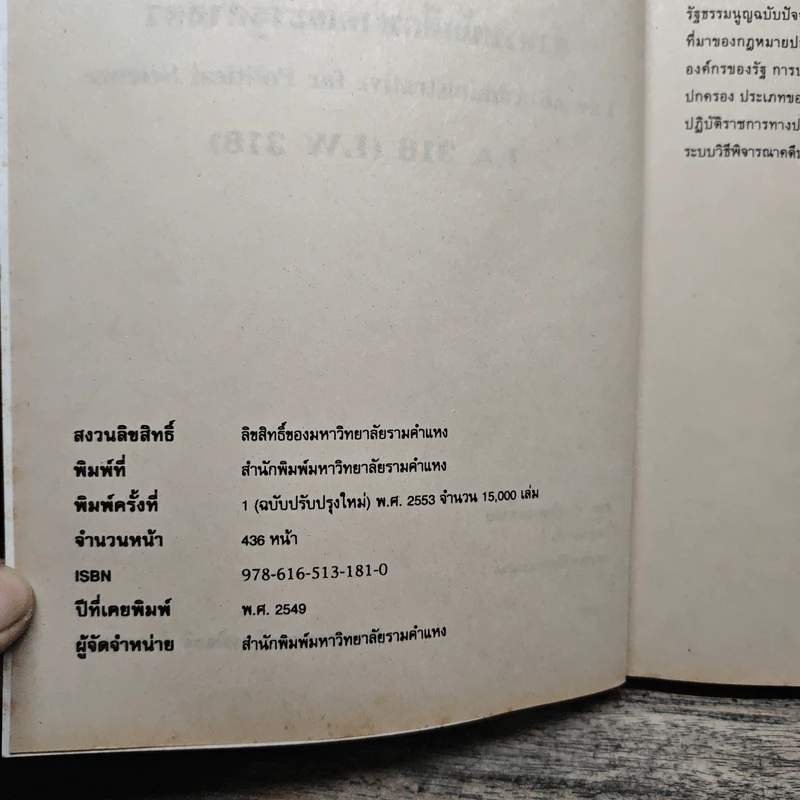 สงวนลิขสิทธิ์ ลิขสิทธิ์ของมหาวิทยาลัยรามคำแหง
พิมพ์ที่ สำนักพิมพ์มหาวิทยาลัยรามคำแหง
พิมพ์ครั้งที่ 1 (ฉบับปรับปรุงใหม่) พ.ศ. 2553 จำนวน 15,000 เล่ม
จำนวนหน้า 436 หน้า
ISBN 978-616-513-181-0
ปีที่เคยพิมพ์ พ.ศ. 2549
ผู้จัดจำหน่าย สำนักพิมพ์มหาวิทยาลัยรามคำแหง
รัฐธรรมนูญฉบับปัจ
ที่มาของกฎหมายป
องค์กรของรัฐ การ
ปกครอง ประเภทขอ
ปฏิบัติราชการทางป
ระบบวิธีพิจารณาคดี